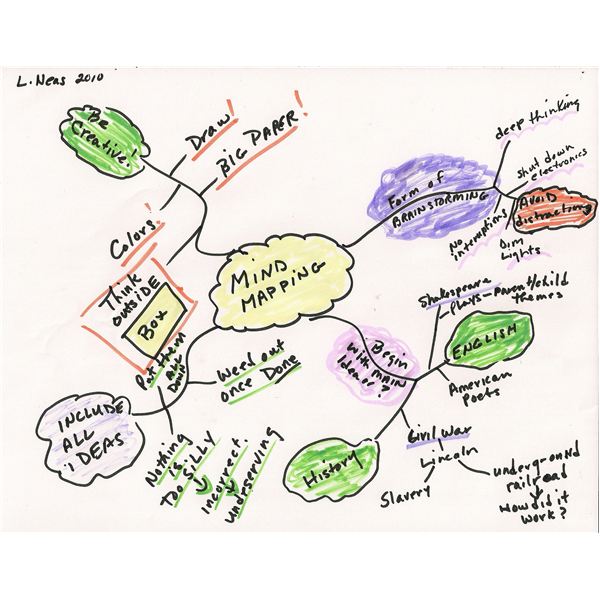 L. Neas 2010
Be
Creative!
Draw!
BIG PAPER!
Colors!
Think
outside
Box
MIND
MAPPING
Form of
BRAINSTORMING
deep thinking
shut down
electronics
AVOID
distractions
No
interruptions
Dim
Lights
Begin
with MAIN
Idea or?
Shakespeare
plays - parent/child
themes
ENGLISH
American
poets
History
Civil War
Lincoln
Slavery
underground
railroad
How did it
work?
INCLUDE
ALL
iDEAS
Put them
ALL
Down
Weed out
once Done
Nothing
is
too SILLY
incorrect.
undeserving